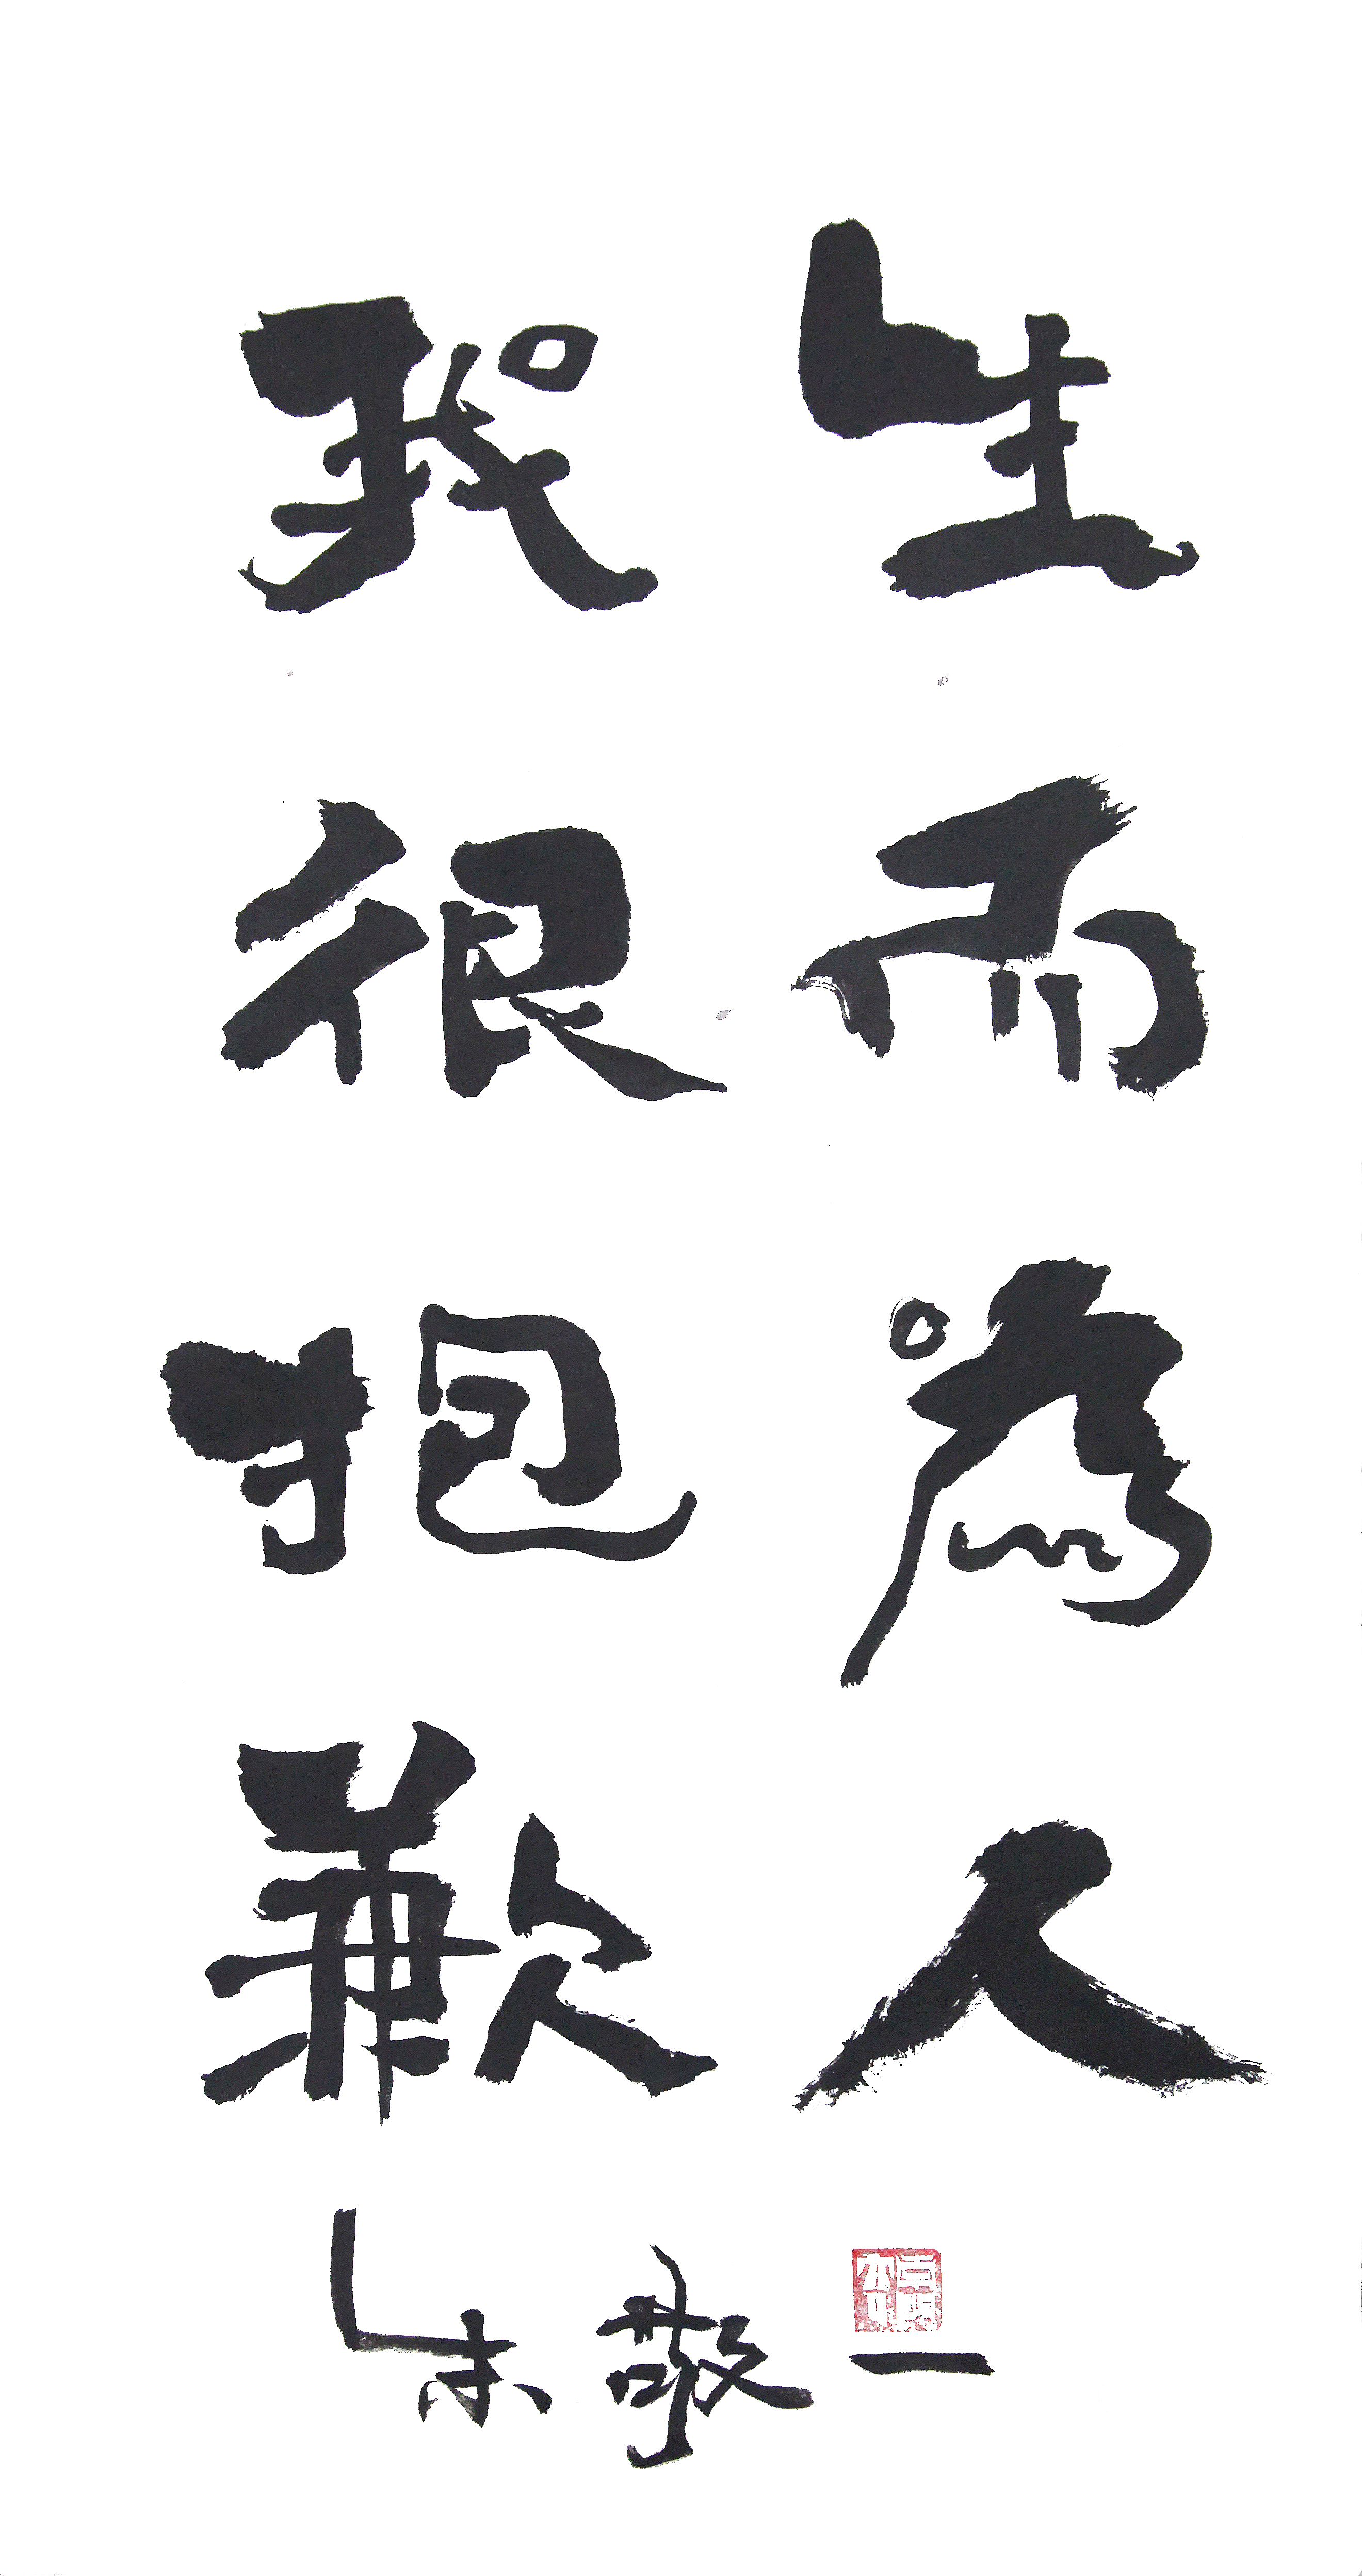 生而為人
我很抱歉
朱敬一